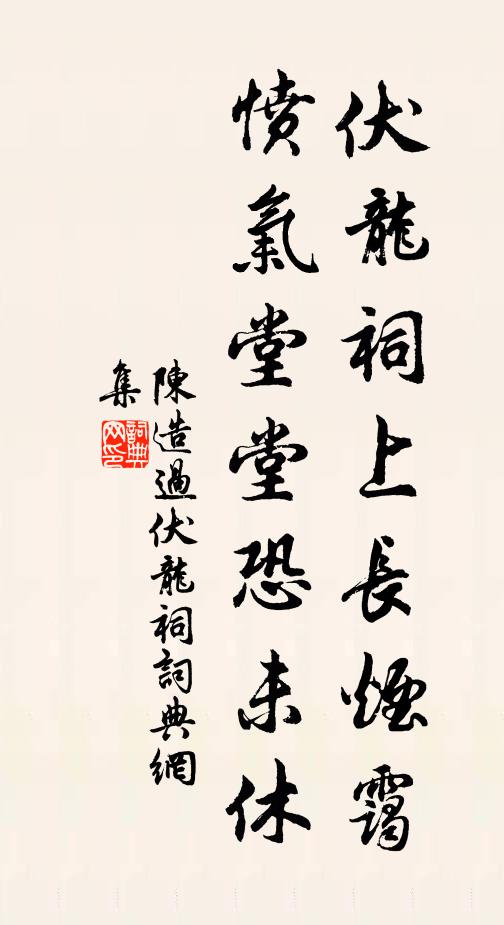 伏龍祠上長煙靄
憤氣堂堂恐未休
陳造過伏龍祠詞典網
集
詞典網印